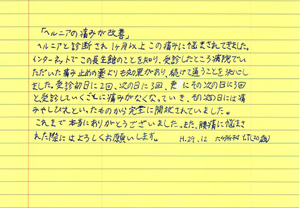 「ヘルニアの痛みが改善」
ヘルニアと診断され1ヶ月以上この痛みに悩まされてきました。
インターネットでこの長生館のことを知り、受診したところ病院でい
ただいた痛み止めの薬よりも効果があり、続けて通うことを決めに
しました。受診初日に2回、次の日に3回、更にその次の日に3回
と受診していくごとに痛みがなくなっていき、初の日には痛
みやしびれといったものから完全に開放されていました。
これまで本当にありがとうございました。また、腰痛に悩まさ
れた際にはよろしくお願いします。 H.29.12